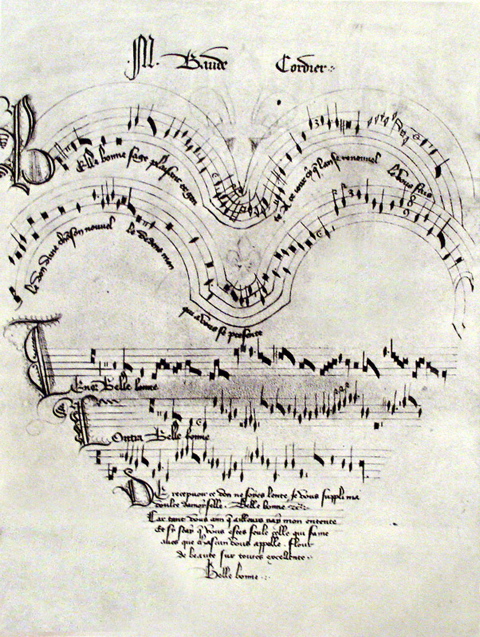 M. Baude Cordier
Belle bonne sage plaisant et gen
te A ce jour cy que lan se renouvel le Vous fais
le don dune chanson nouvel le dedens mon
qui a vous se presente
Tenor Belle bonne
Contra Belle bonne
De recepvoir ce don ne soyes lente Je vous suppli ma
doulce damoyselle. Belle bonne
Car tant vous aim qaillours nay mon entente
Et sy scay que vous estes seule celle qui fame
aves que chascun vous appelle. flour
de beaute sur toutes excellente
Belle bonne.